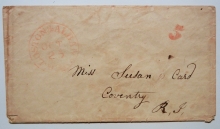 5
Miss Susan Card
Coventry
R. I.